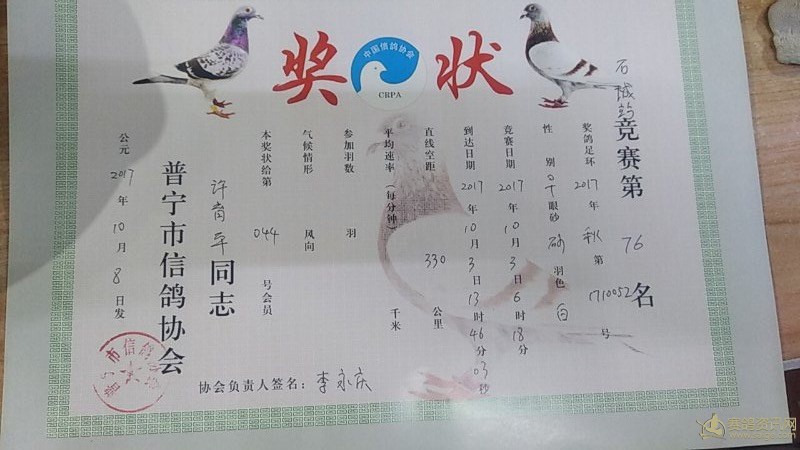 奖 状
中国信鸽协会
CRPA
石城站竞赛第76名
奖鸽足环2017年秋第1710052号
性别♀眼砂砂羽色白
竞赛日期2017年10月3日6时18分
到达日期2017年10月3日13时46分03秒
直线空距330公里
平均速率(每分钟)千米
参加羽数 羽
气候情形 风向
本奖状给第044号会员
平同志
普宁市信鸽协会
公元2017年10月8日发
协会负责人签名:李永庆
普宁市信鸽
赛鸽资讯网